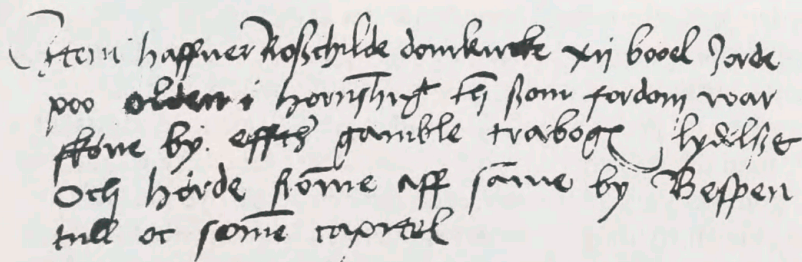 Item haffuer Roschilde domkircke xij booel Jorde
poo olden i hornshrit th som fordom war
skøne by. effther gamble trabogs lydelsse
Och hørde somme aff samme by Bespen
tiill oc somme capittel